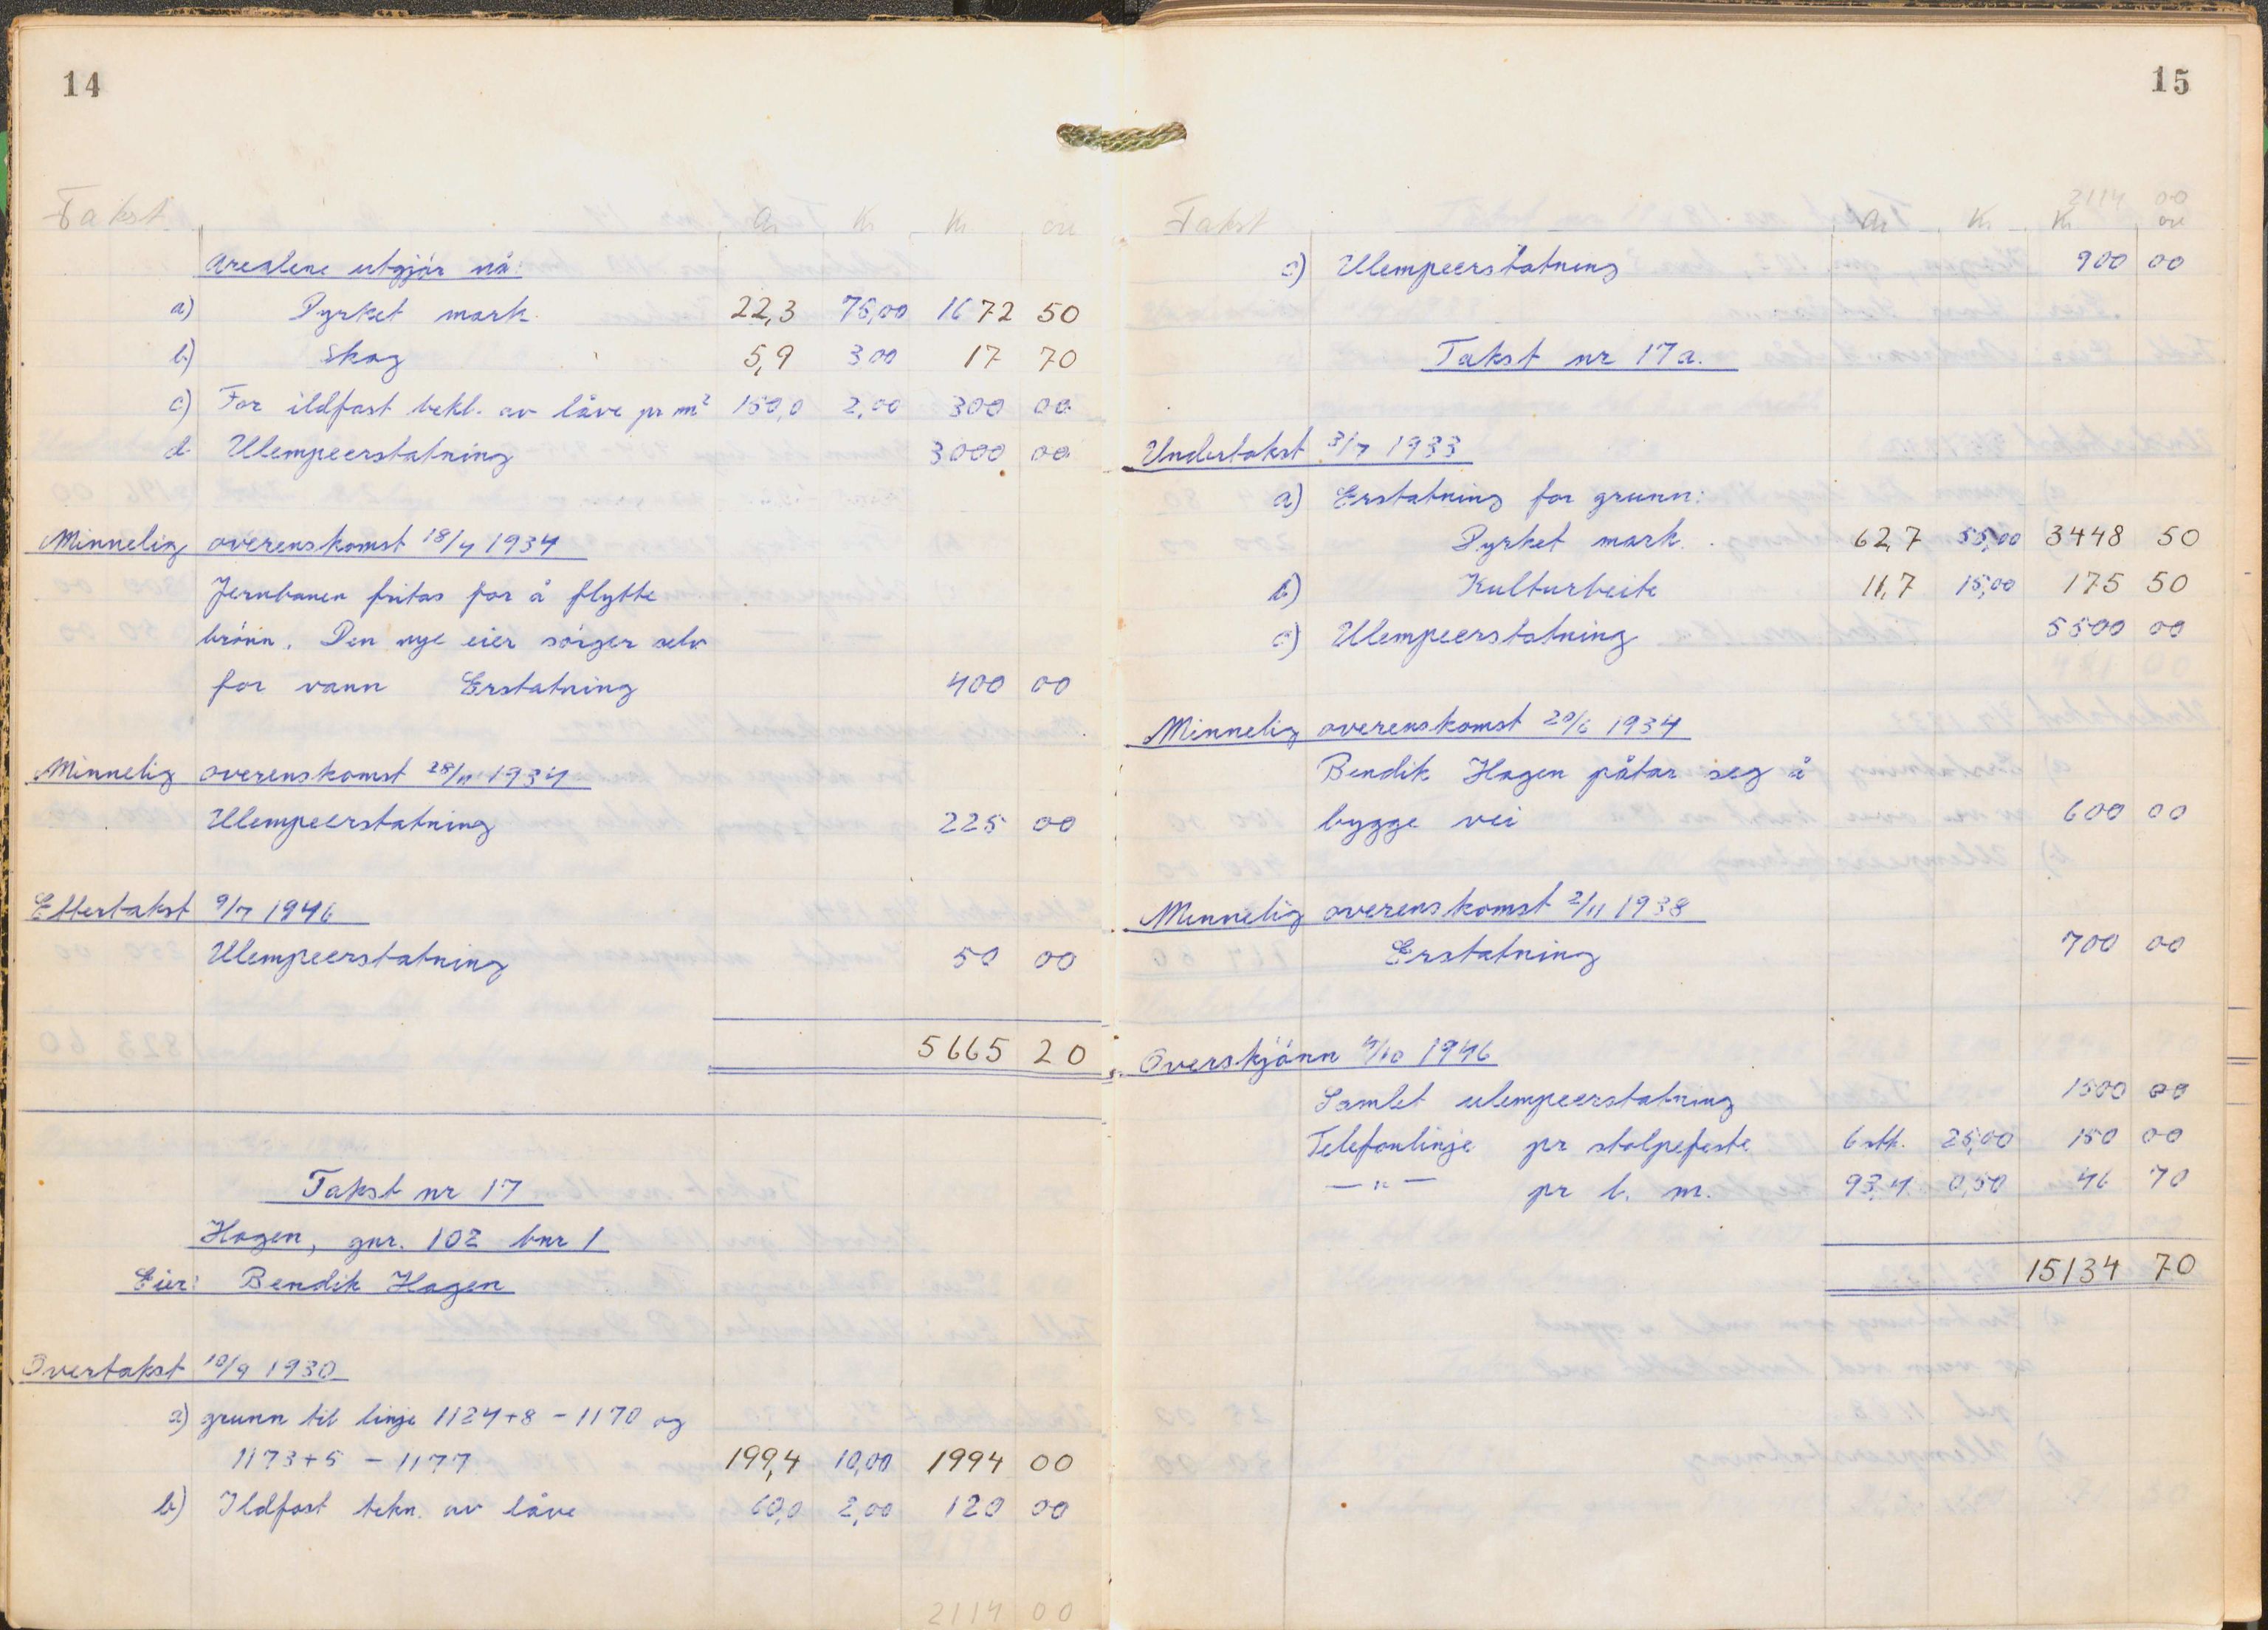 14
Takst. Ar Kr Kr öre
Arealene utgjör nå:
a) Dyrket mark. 22,3 75,00 1672 50
b) Skog 5,9 3 00 17 70
c) For ildfast bekl. av låve pr m² 150,0 2,00 300 00
d Ulempeerstatning 3000 00
Minnelig overenskomst 18/4 1934
Jernbanen fritas for å flytte
brönn. Den nye eier sörger selv
for vann Erstatning 400 00
Minnelig overenskomst 28/11 1934
Ulempeerstatning 225 00
Ettertakst 9/7 1946
Ulempeerstatning 50 00
5665 20
Takst nr 17
Hagen, gnr. 102 bnr 1
Eier: Bendik Hagen
Overtakst 10/9 1930
a) grunn til linje 1124+8 - 1170 og
1173+5 - 1177 199,4 10,00 1994 00
b) Ildfast tekn. av låve 60,0 2,00 120 00
2114 00
15
2114 00
Takst Ar Kr Kr öre
c) Ulempeerstatning 900 00
Takst nr 17a.
Undertakst 3/7 1933
a) Erstatning for grunn:
Dyrket mark. 62,7 55,00 3448 50
b) Kulturbeite 11,7 15,00 175 50
c) Ulempeerstatning 5500 00
Minnelig overenskomst 20/6 1934
Bendik Hagen påtar seg å
bygge vei 600 00
Minnelig overenskomst 2/11 1938
Erstatning 700 00
Overskjönn 4/10 1946
Samlet ulempeerstatning 1500 00
Telefonlinje pr stolpefeste 6 stk. 25,00 150 00
— " — pr l. m. 93,4 0,50 46 70
15134 70